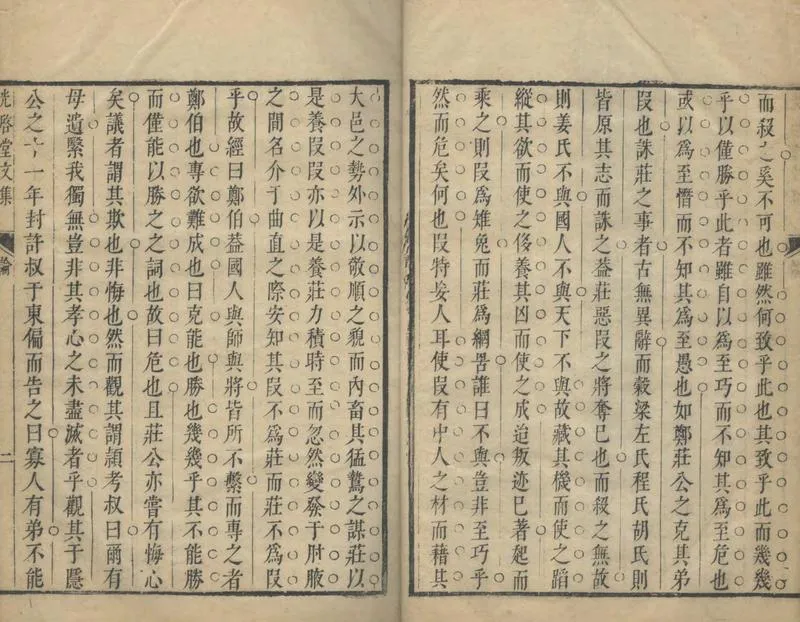 而殺之奚不可也雖然何致乎此也其致乎此而幾幾
乎以僅勝乎此者雖自以為至巧而不知其為至危也
或以為至憯而不知其為至愚也如鄭莊公之克其弟
段也誅莊之事者古無異辭而穀梁左氏程氏胡氏則
皆原其志而誅之葢莊惡段之將奪已也而殺之無故
則姜氏不與國人不與天下不與故藏其機而使之蹈
縱其欲而使之侈養其凶而使之成迨叛迹已著起而
乘之則段為雉兔而莊為網罟誰曰不與豈非至巧乎
然而危矣何也段特妄人耳使段有中人之材而藉其
大邑之勢外示以敬順之貌而內畜其猛鷙之謀莊以
是養段段亦以是養莊力積時至而忽然變發于肘腋
之間名介于曲直之際安知其段不為莊而莊不為段
乎故經曰鄭伯葢國人與師與將皆所不繫而專之者
鄭伯也專欲難成也曰克能也勝也幾幾乎其不能勝
而僅能以勝之之詞也故曰危也且莊公亦嘗有悔心
矣議者謂其欺也非悔也然而觀其謂頴考叔曰爾有
母遺繄我獨無豈非其孝心之未盡滅者乎觀其于隱
公之十一年封許叔于東偏而告之曰寡人有弟不能
光啓堂文集
論
二